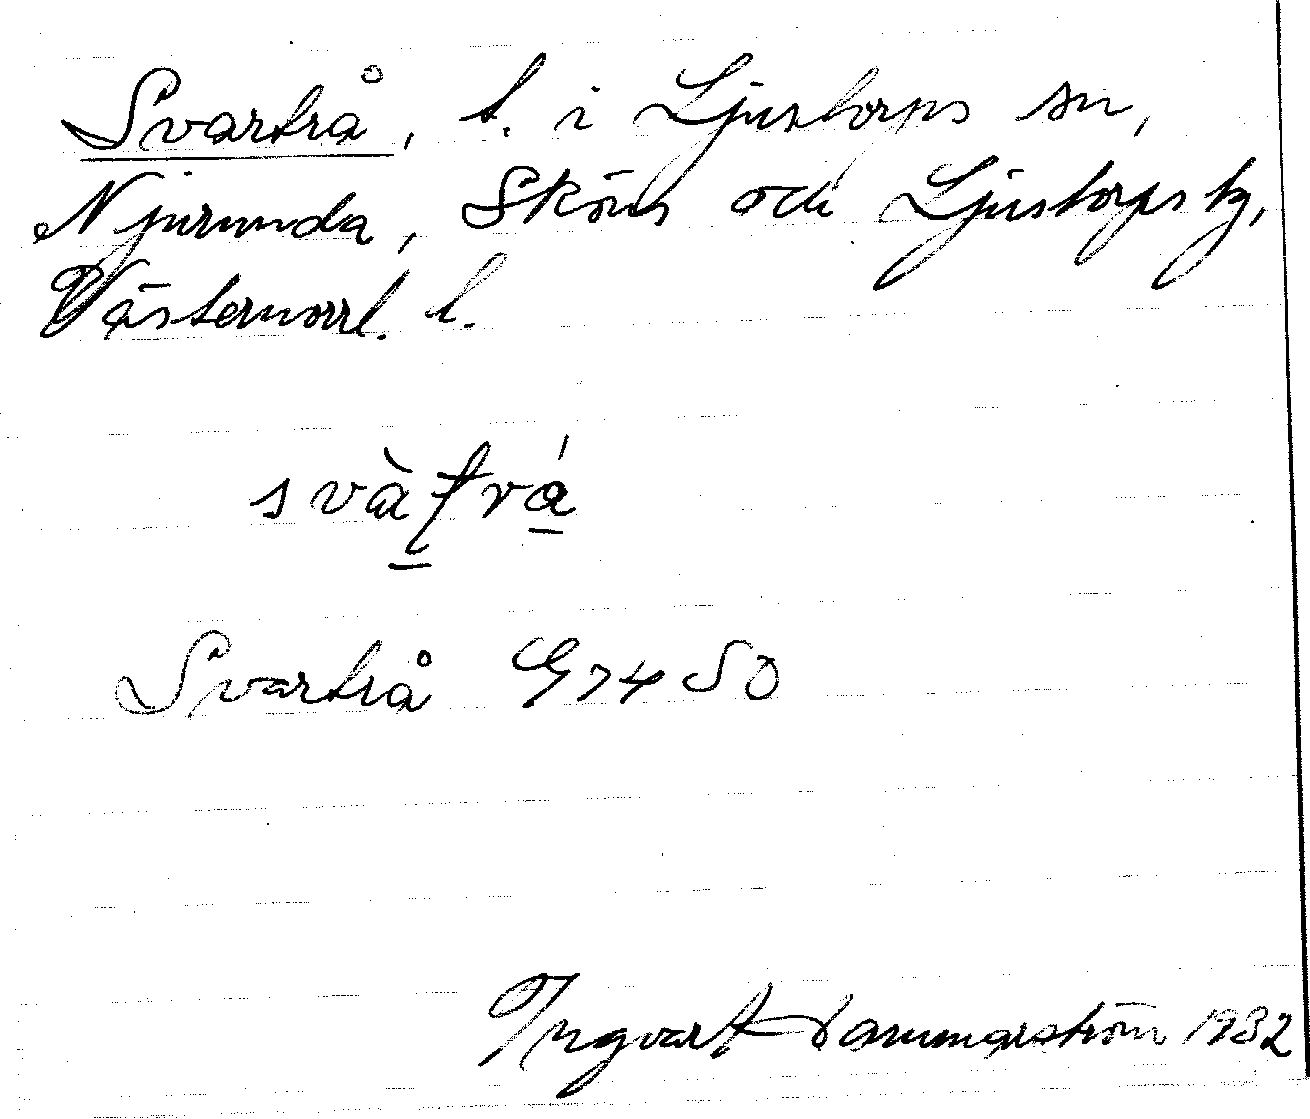 Svartrå, t. i Ljustorps sn,
Njurunda, Sköns och Ljustorps tg,
Västernorrl. l.
svàtrá
Svartrå G74 SO
Ingvar Hammarström 1932